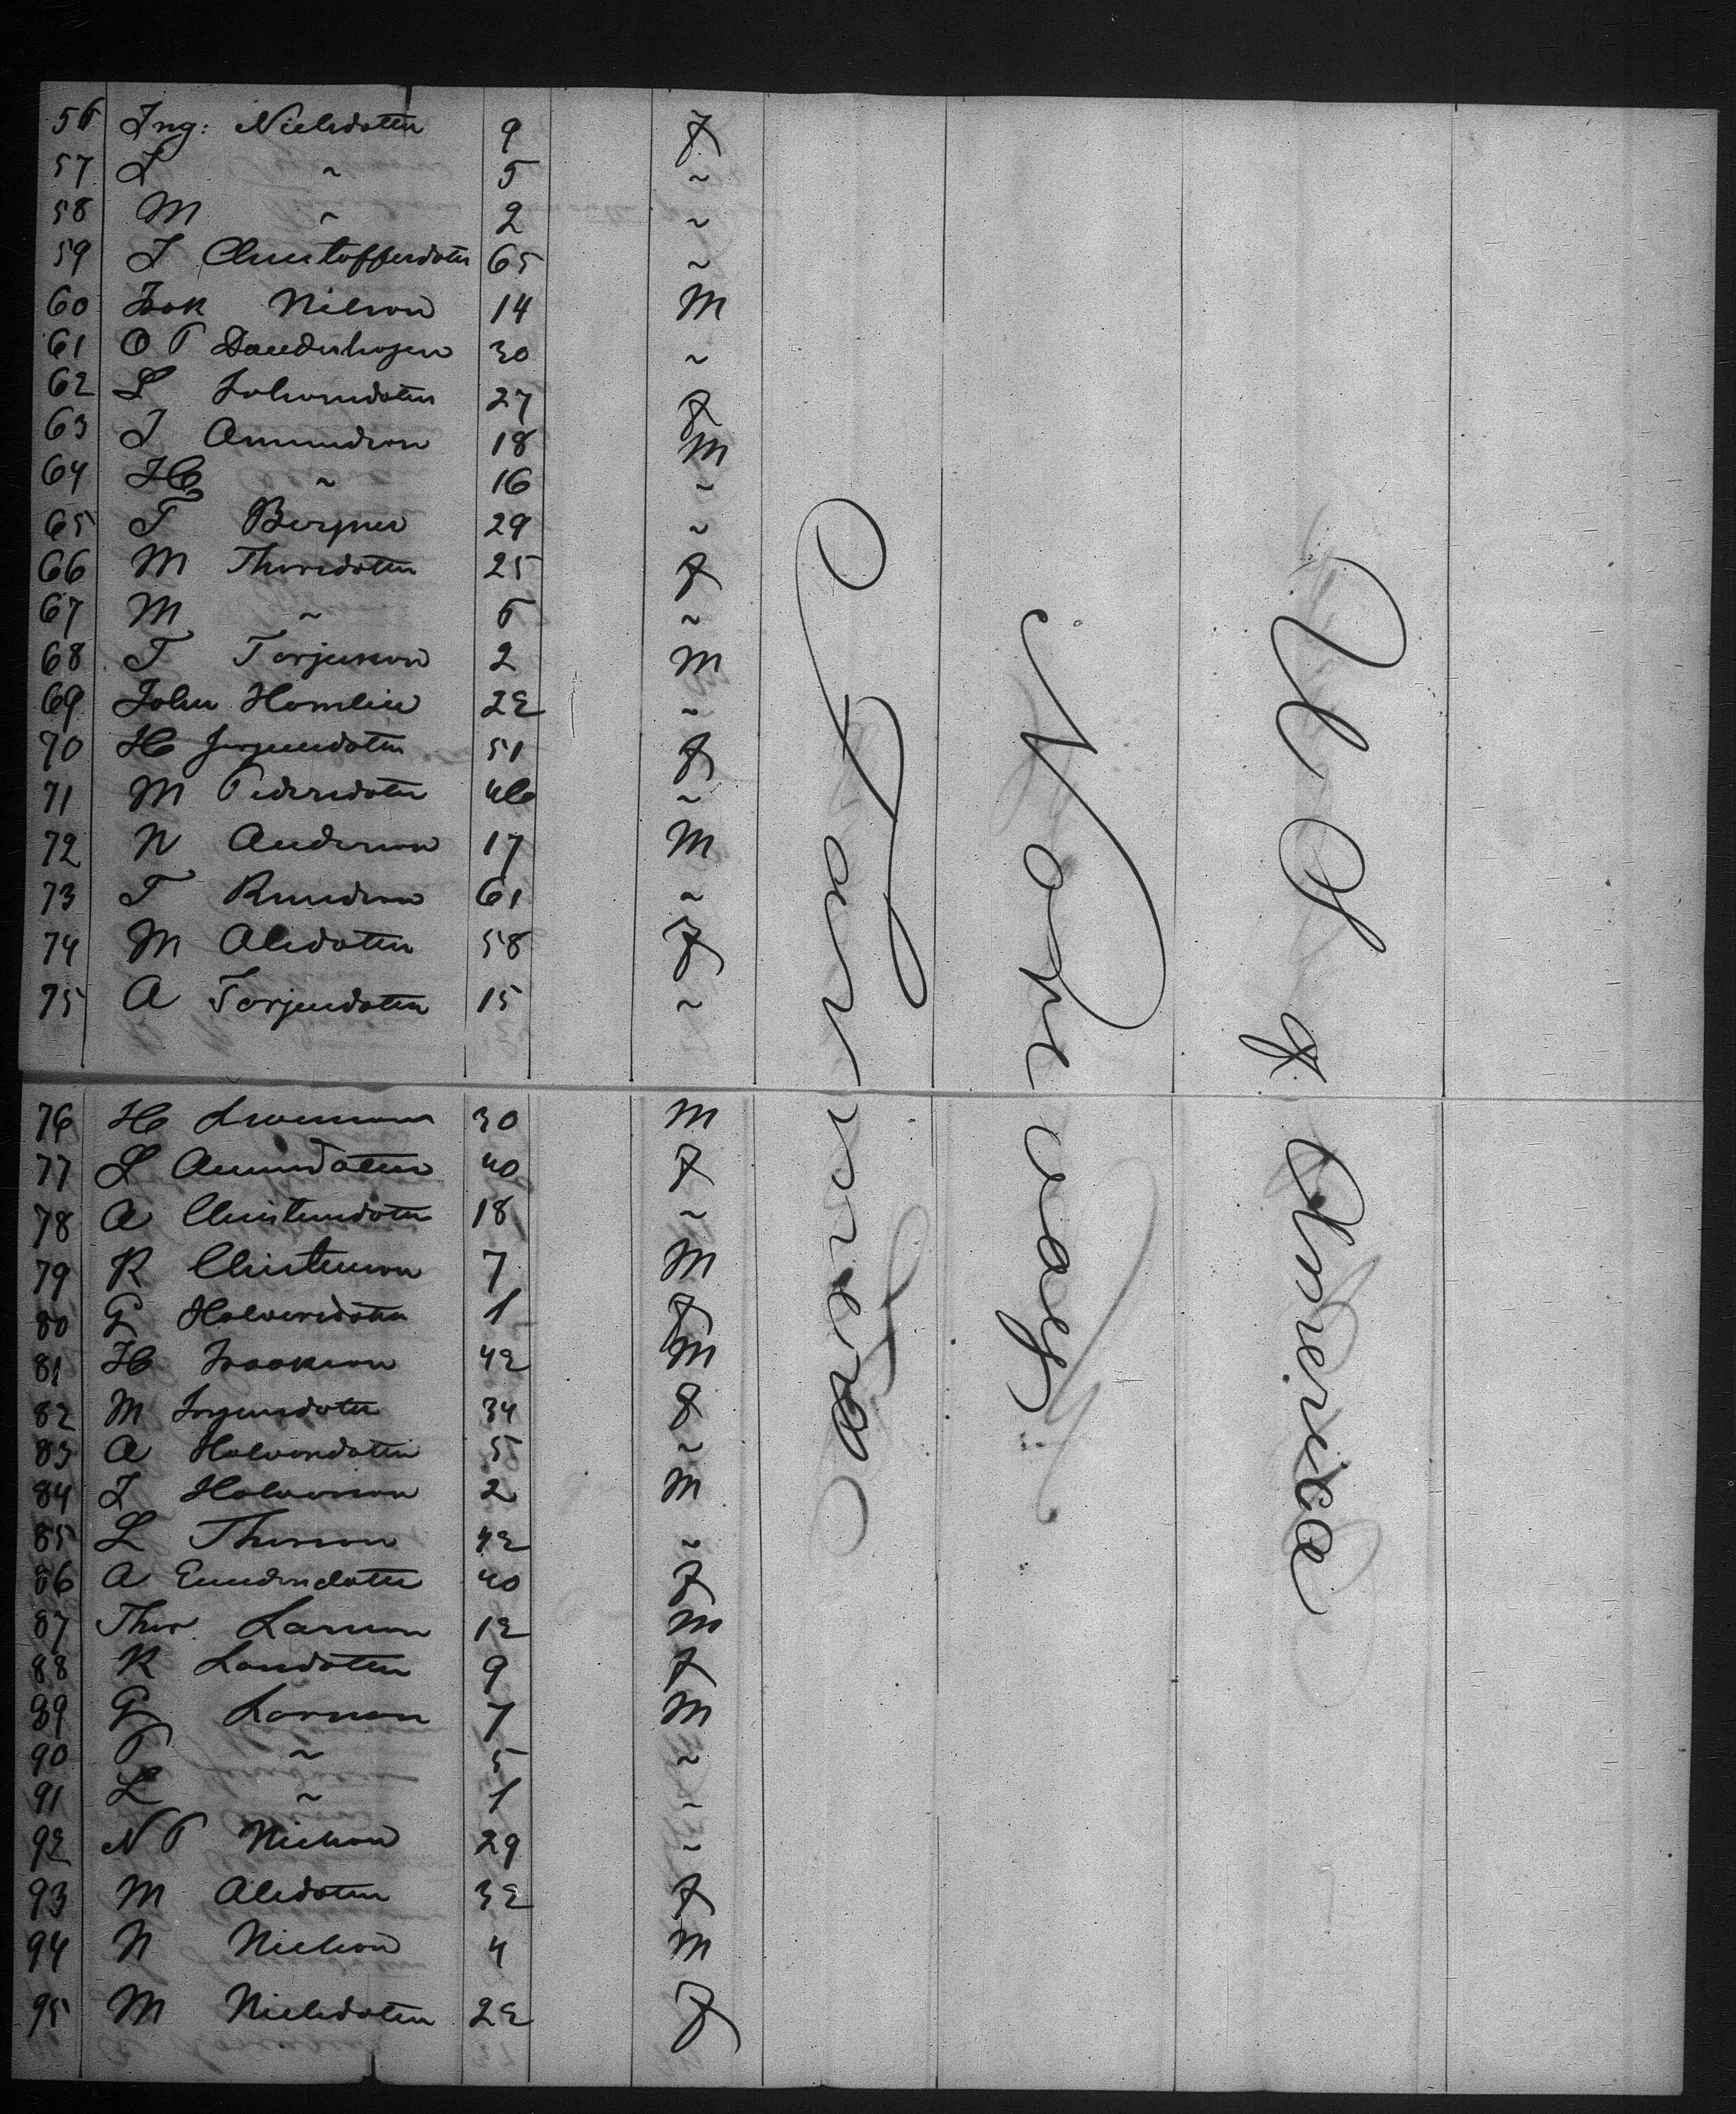 56 Ing: Nielsdatter 9 F
57 I ~ 5 ~
58 M ~ 2 ~
59 I Christoffersdatter 65 ~
60 Isak Nilson 14 M
61 O T 30 ~
62 L Johnsdatter 27 F
63 T Amundson 18 M
64 H ~ 16 ~
65 T 29 ~
66 M Thorsdatter 25 F
67 M ~ ~
68 T Torjuson 2 M
69 John Homlin 22 ~
70 H Jorgensdatter 51 F
71 M Pedersdatter 46 ~
72 N Anderson 17 M
73 T Knudson 61 ~
74 M Olsdatter 58 F
75 A Torjusdatter 15 ~
76 H 30 M
77 L 40 F
78 A Christensdatter 18 ~
79 K Christenson 7 M
80 G Halversdatter 1 F
81 H Isakson 42 M
82 M Jorgensdatter 34 F
83 A Halvorsdatter 5 ~
84 I Halvorson 2 M
85 L Thorson 42 ~
86 A 40 F
87 Thor Larson 12 M
88 K Larsdatter 9 F
89 G Larson 7 M
90 P ~ 5 ~
91 L ~ 1 ~
92 N P Nielson 29 ~
93 M Olsdatter 32 F
94 N Nielson 4 M
95 M Nielsdatter 22 F
Norway
U S of America